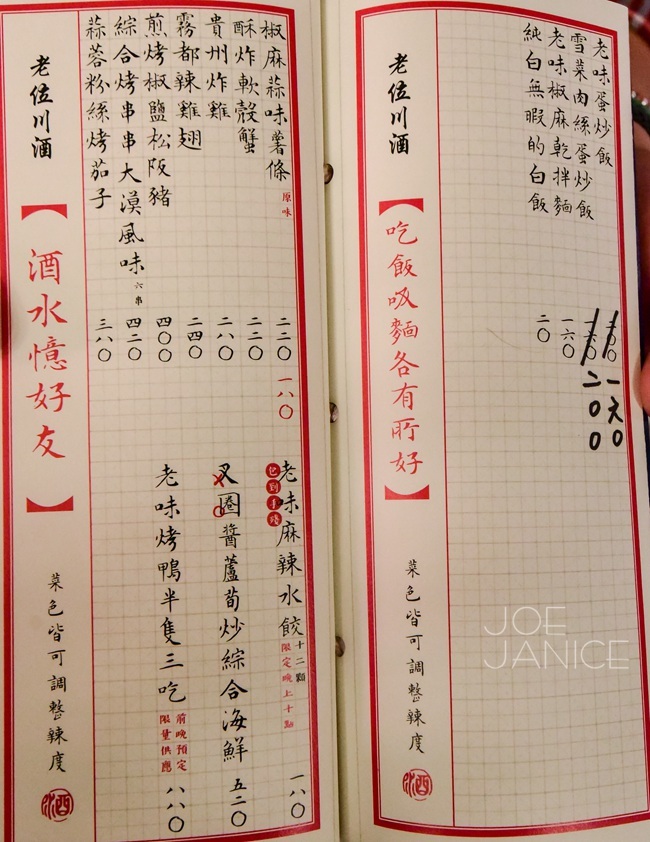 老味蛋炒飯
雪菜肉絲蛋炒飯 二00
老味椒麻乾拌麵 一六〇
純白無暇的白飯 二〇
老位川酒
【吃飯吸麵各有所好】
菜色皆可調整辣度
酒
椒麻蒜味薯條 二二〇
原味 一八〇
酥炸軟殼蟹 二二〇
貴州炸雞 二八〇
霧都辣雞翅 二四〇
煎烤椒鹽松阪豬 四〇〇
綜合烤串串大漠風味 六串 四二〇
蒜蓉粉絲烤茄子 三八〇
包到手殘
老味麻辣水餃 十二顆 一八〇
限定晚上十點
叉圈醬蘆筍炒綜合海鮮 五二〇
老味烤鴨半隻三吃 八八〇
前晚預定
限量供應
老位川酒
【酒水憶好友】
菜色皆可調整辣度
酒
JOE
JANICE